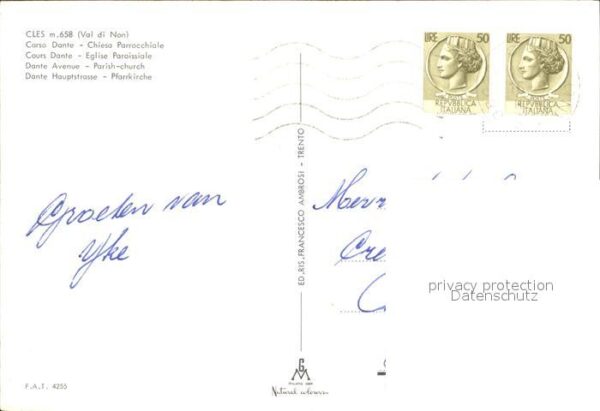 CLES m.658 (Val di Non)
Corso Dante - Chiesa Parrocchiale
Cours Dante - Eglise Paroissiale
Dante Avenue - Parish-church
Dante Hauptstrasse - Pfarrkirche
LIRE 50
REPVBBLICA
ITALIANA
LIRE 50
REPVBBLICA
ITALIANA
Groeten van
Yke
ED. RIS. FRANCESCO AMBROSI - TRENTO
Mevr
Cre
privacy protection
Datenschutz
F.A.T. 4255
G
M
Natural colours